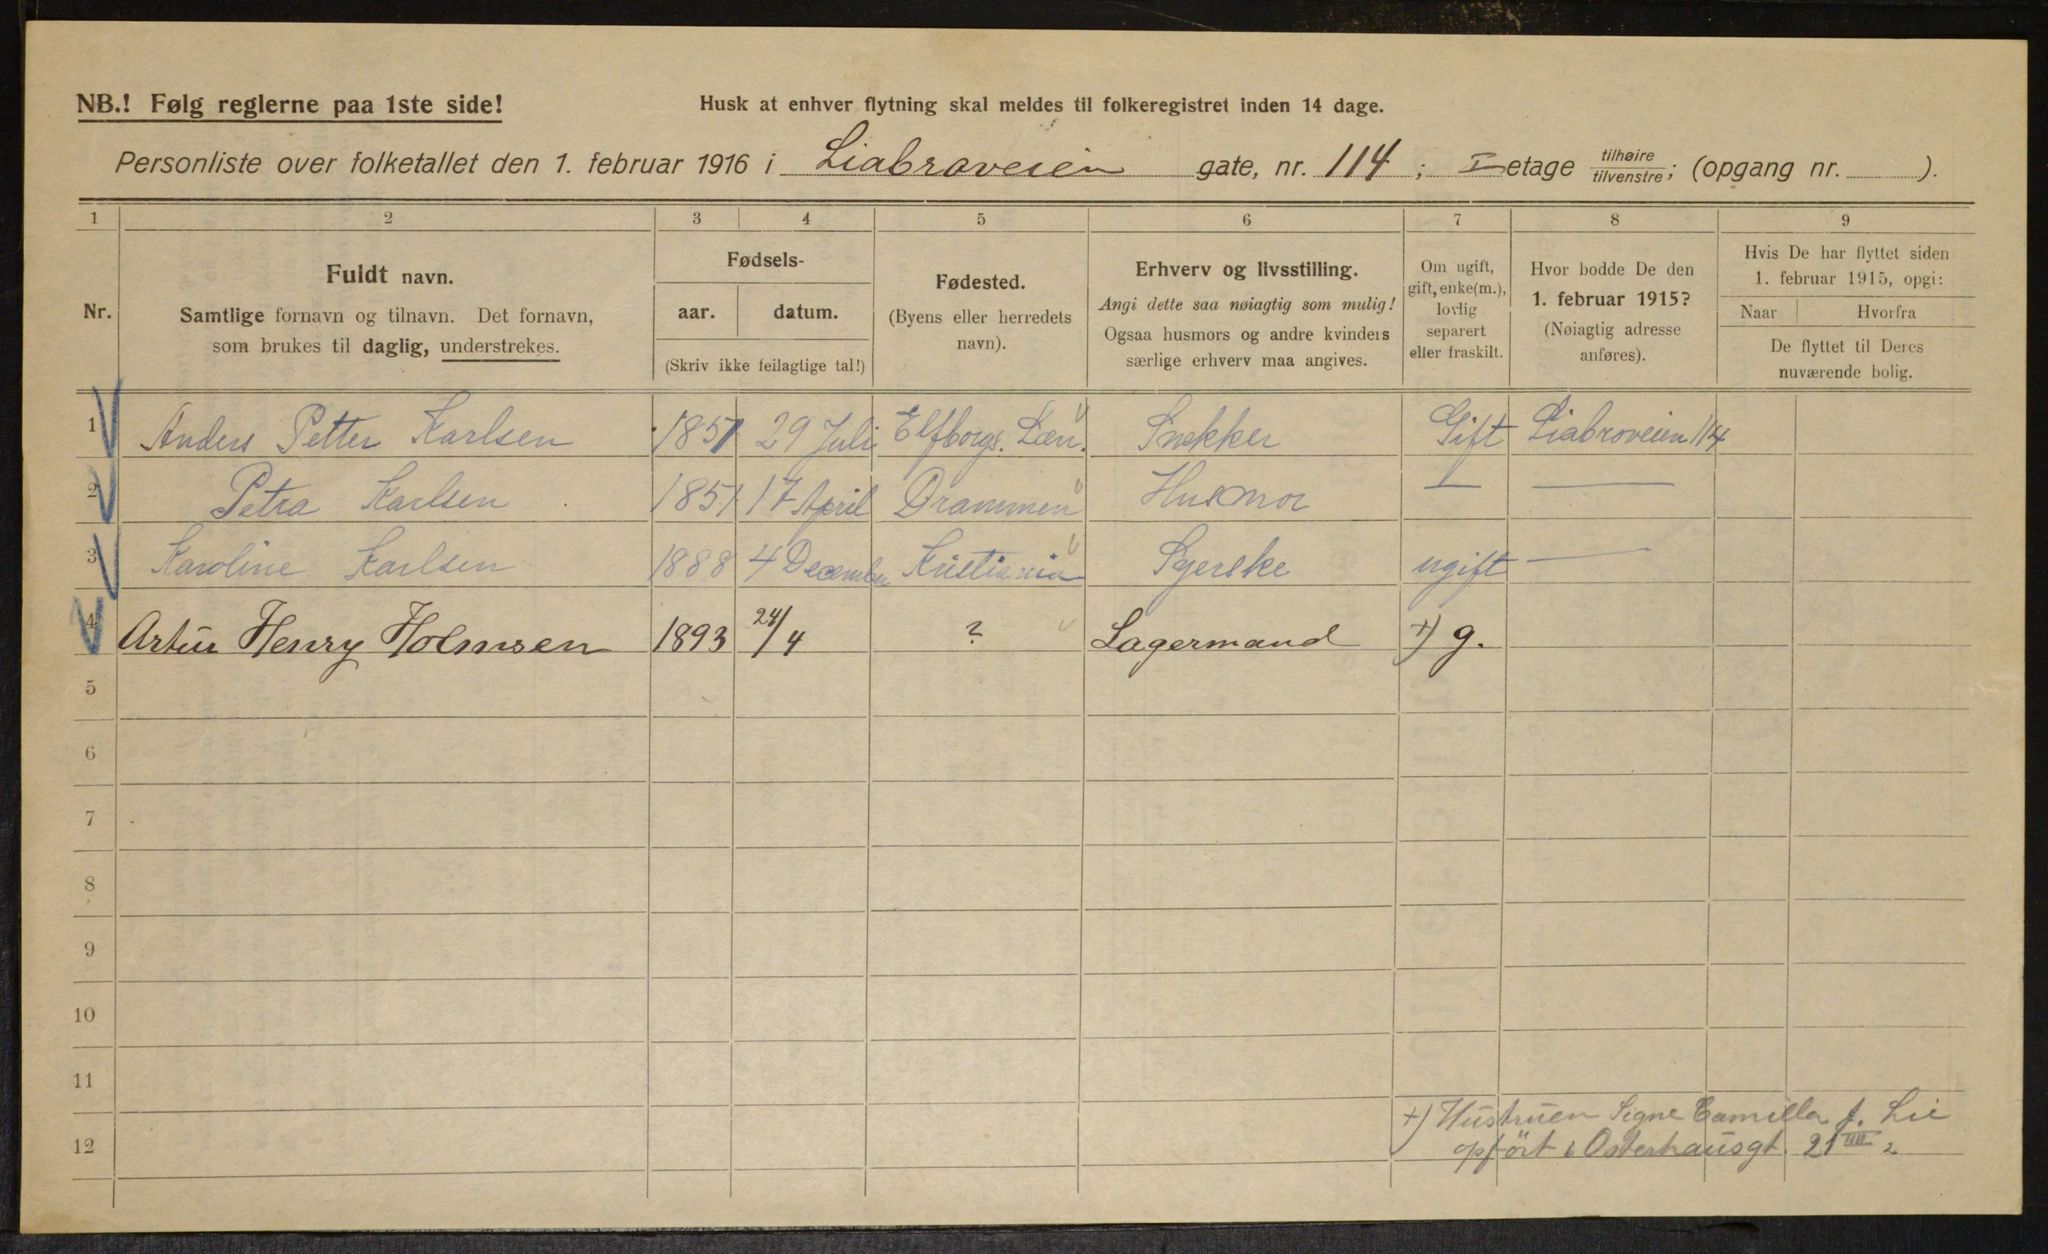 NB.! Følg reglerne paa 1ste side! Husk at enhver flytning skal meldes til folkeregistret inden 14 dage.
Personliste over folketallet den 1. februar 1916 i Liabroveien gate, nr. 114; I etage tilhøire tilvenstre; (opgang nr. ).
1 2 3 4 5 6 7 8 9
Nr.
Fuldt navn.
Samtlige fornavn og tilnavn. Det fornavn,
som brukes til daglig, understrekes.
Fødsels-
aar. datum.
(Skriv ikke feilagtige tal!)
Fødested.
(Byens eller herredets
navn).
Erhverv og livsstilling.
Angi dette saa nøiagtig som mulig!
Ogsaa husmors og andre kvinders
særlige erhverv maa angives.
Om ugift,
gift, enke(m.),
lovlig
separert
eller fraskilt.
Hvor bodde De den
1. februar 1915?
(Nøiagtig adresse
anføres).
Hvis De har flyttet siden
1. februar 1915, opgi:
Naar Hvorfra
De flyttet til Deres
nuværende bolig.
1 Anders Petter Karlsen 1851 29 Juli Elfborgs. Læn. Snekker Gift Liabroveien 114
2 Petra Karlsen 1851 17 April Drammen Husmor — —
3 Karoline Karlsen 1888 4 December Kristiania Syerske ugift —
4 Artur Henry Holmsen 1893 24/4 ? Lagermand +) g.
5
6
7
8
9
10
11
12
+) Hustruen Signe Camilla f. Lie
opført i Osterhausgt. 21 IIII 2